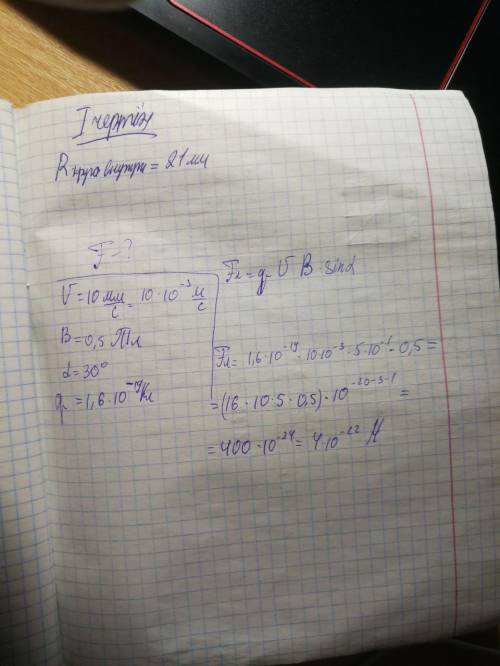 I чертёж
R круга внутри = 21 мм
F - ?
V = 10 мм/с = 10 · 10⁻³ м/с
B = 0,5 Тл
α = 30°
q = 1,6 · 10⁻¹⁹ Кл
Fл = q V B · sinα
Fл = 1,6 · 10⁻¹⁹ · 10 · 10⁻³ · 5 · 10⁻¹ · 0,5 =
= (16 · 10 · 5 · 0,5) · 10⁻²⁰⁻³⁻¹ =
= 400 · 10⁻²⁴ = 4 · 10⁻²² Н